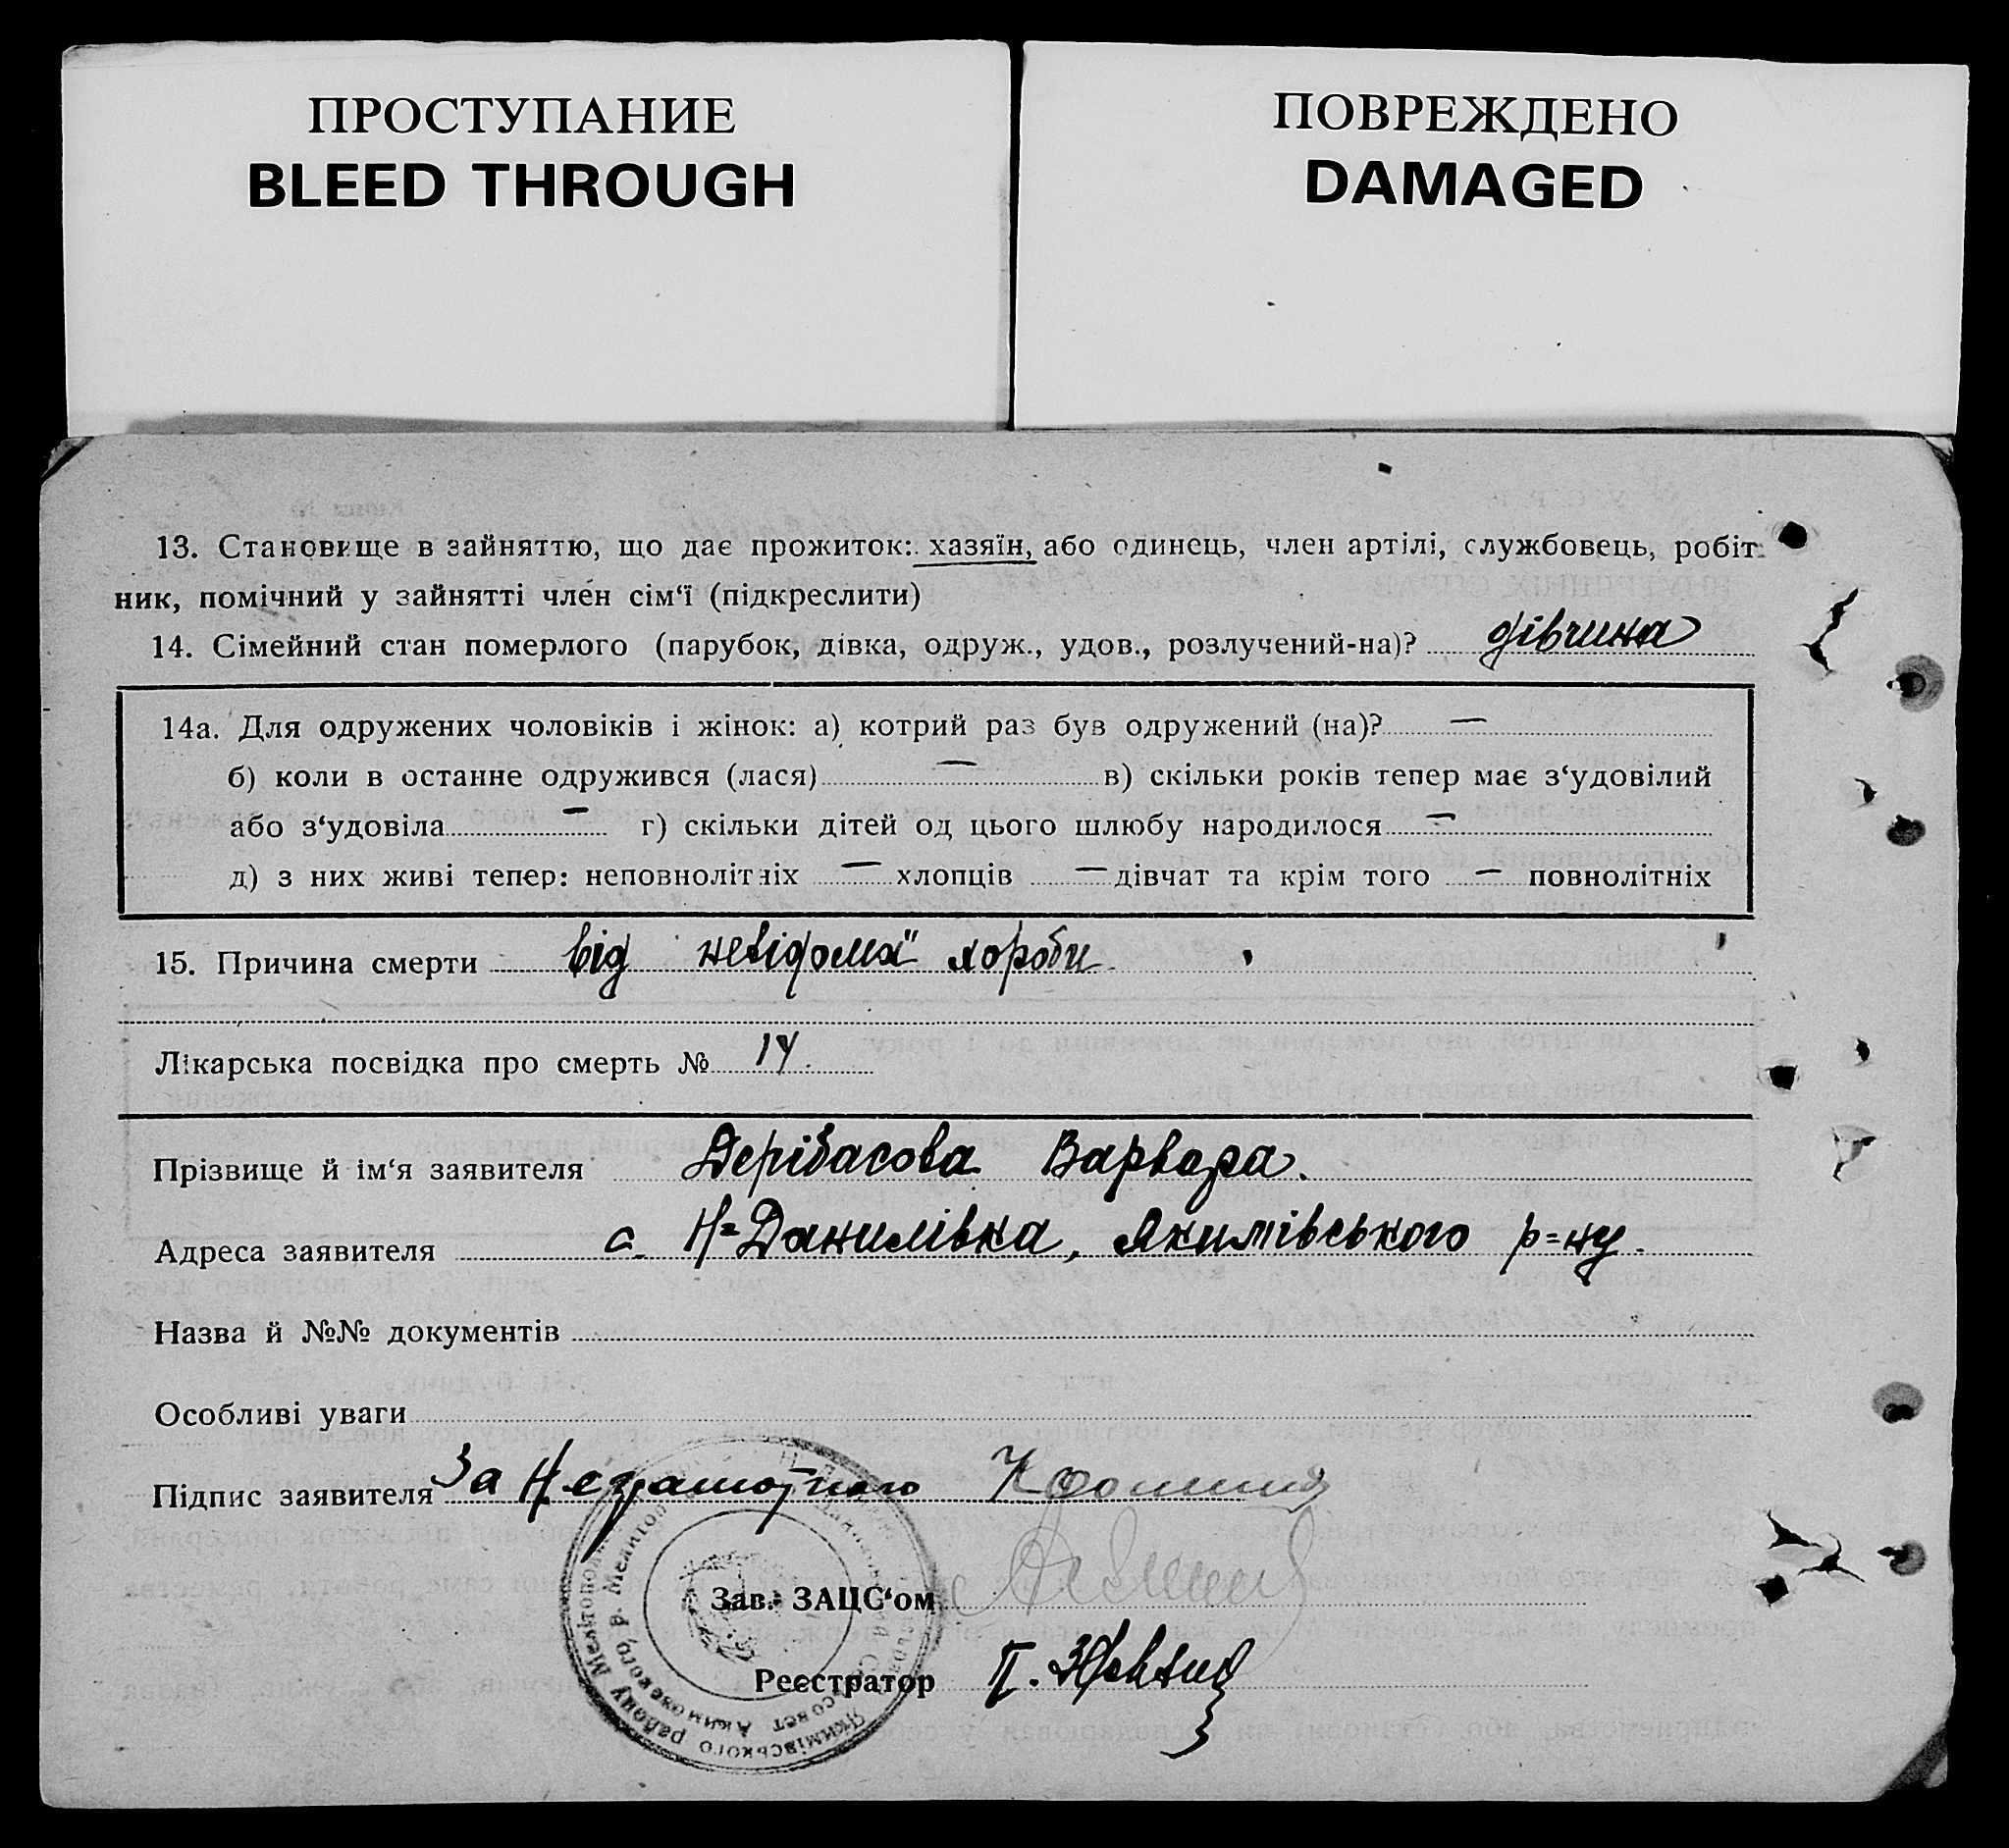 ПРОСТУПАНИЕ
BLEED THROUGH
ПОВРЕЖДЕНО
DAMAGED
13. Становище в зайняттю, що дає прожиток: хазяїн, або одинець, член артілі, службовець, робіт-
ник, помічний у зайнятті член сім‘ї (підкреслити)
14. Сімейний стан померлого (парубок, дівка, одруж., удов., розлучений-на)? дівчина
14а. Для одружених чоловіків і жінок: а) котрий раз був одружений (на)? —
б) коли в останне одружився (лася) — в) скільки років тепер має з‘удовілий
або з‘удовіла — г) скільки дітей од цього шлюбу народилося —
д) з них живі тепер: неповнолітніх — хлопців — дівчат та крім того — повнолітніх
15. Причина смерти від невідомої хороби
Лікарська посвідка про смерть № 14.
Прізвище й ім‘я заявителя Дерібасова Варвара.
Адреса заявителя с. Н=Данилівка, Якимівського р=ну.
Назва й №№ документів
Особливі уваги
Підпис заявителя За Неграмотного
Зав. ЗАЦС‘ом
Реєстратор П.
Якимівського району Мелітопол
Акимовского р. Мелитоп